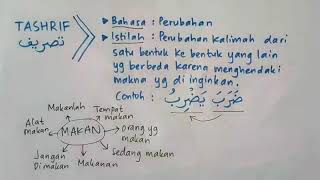 TASHRIF
تصريف
• Bahasa : Perubahan
• Istilah : Perubahan kalimah dari
satu bentuk ke bentuk yang lain
yg berbeda karena menghendaki
makna yg di inginkan.
Contoh : ضَرَبَ يَضْرِبُ
Makanlah
Tempat
makan
Alat
makan
MAKAN
Orang yg
makan
Jangan
Dimakan
Makanan
Sedang makan